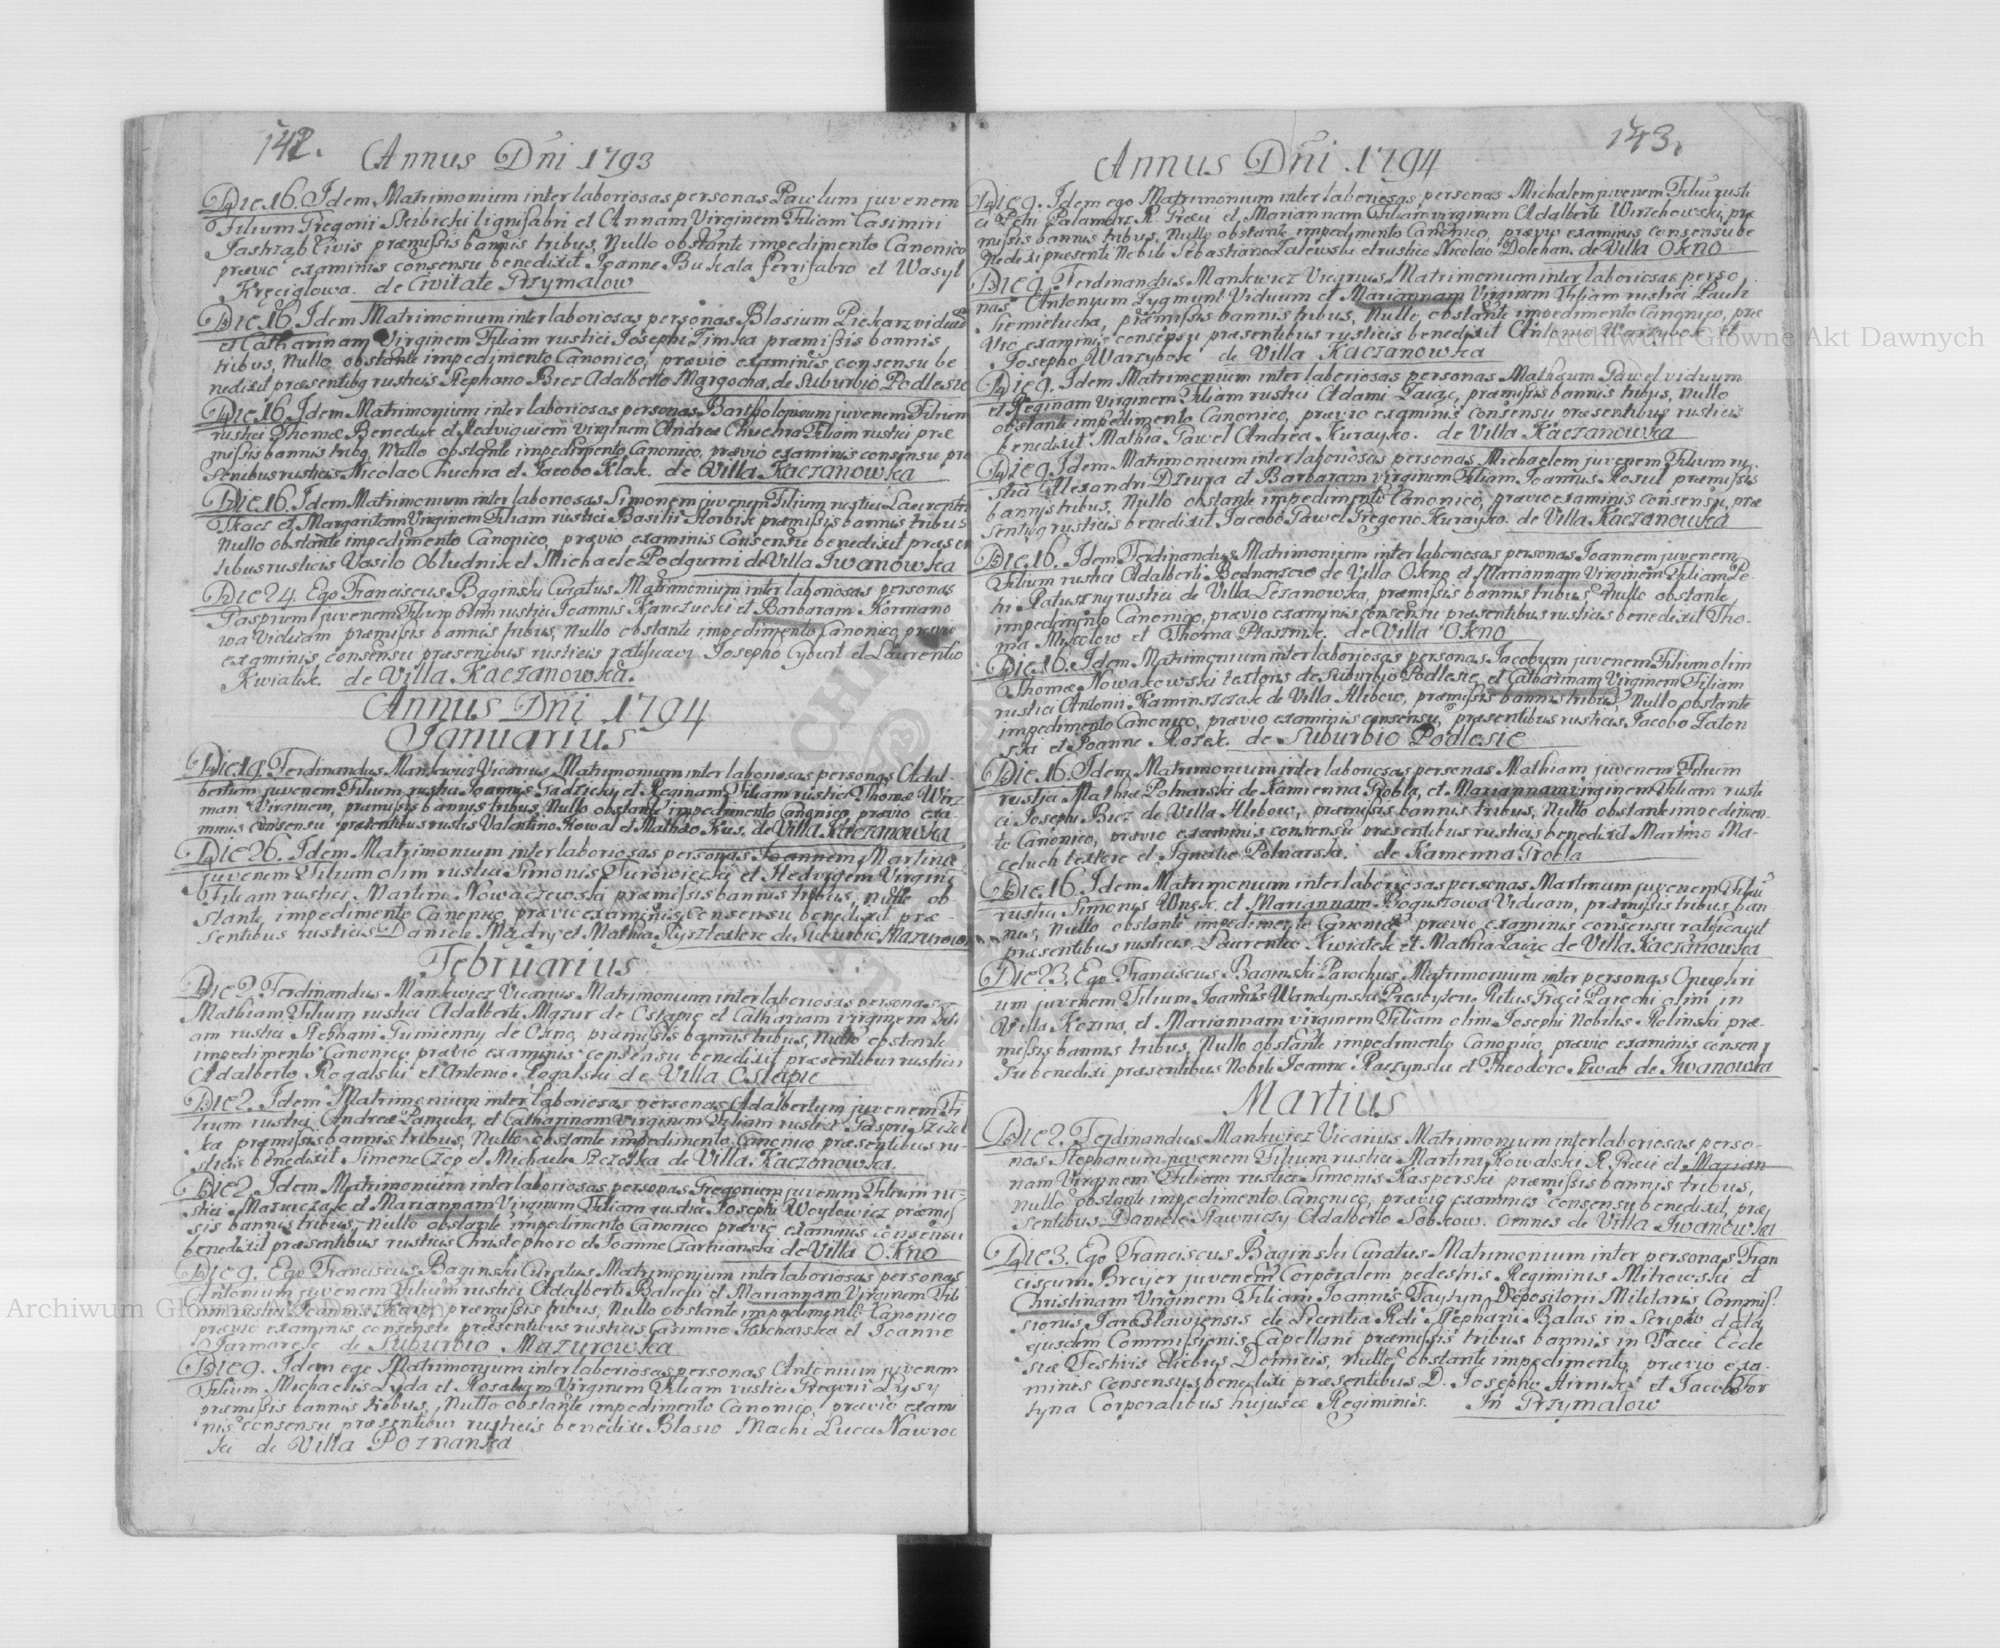 142.
Annus Dni 1793
Die 16. Idem Matrimonium inter laboriosas personas Paulum juvenem
Filium Gregorii Skibicki lignifabri et Annam Virginem Filiam Casimiri
Jastrząb Civis præmissis bannis tribus, Nullo obstante impedimento Canonico
prævio examinis consensu benedixit Joanne Bukata ferrifabro et Wasyl
Kręciglowa. de Civitate Grzymalow
Die 16. Idem Matrimonium inter laboriosas personas Blasium Piekarz viduum
et Catharinam Virginem Filiam rustici Josephi Timka præmissis bannis
tribus, Nullo obstante impedimento Canonico, prævio examinis consensu be
nedixit præsentibq rusticis Stephano Bicz Adalberto Margocha, de Suburbio Podlesie
Die 16. Idem Matrimonium inter laboriosas personas Bartholomæum juvenem Filium
rustici Thomæ Benedyk et Hedviguiem virginem Andreæ Chuchra Filiam rustici præ
missis bannis tribq, Nullo obstante impedimento Canonico, prævio examinis consensu præ
sentibus rusticis Nicolao Chuchra et Jacobo Klak. de Villa Kaczanowka
Die 16. Idem Matrimonium inter laboriosas Simonem juvenem Filium rustici Laurentii
Tkacz et Margaritam Virginem Filiam rustici Basilii Horbik præmissis bannis tribus
Nullo obstante impedimento Canonico, prævio examinis Consensu benedixit præsen
tibus rusticis Vasilo Obludnik et Michaele Podgurni de Villa Iwanowka
Die 24. Ego Franciscus Baginski Curatus Matrimonium inter laboriosas personas
Gasprum juvenem Filium olim rustici Joannis Kanczucki et Barbaram Kormano
wa Viduam præmissis bannis tribus, Nullo obstante impedimento Canonico, prævio
examinis consensu præsentibus rusticis ratificavi Josepho Cybut et Laurentio
Kwiatek. de Villa Kaczanowka.
Annus Dni 1794
Januarius
Die 19. Ferdinandus Mankwicz Vicarius Matrimonium inter laboriosas personas Adal-
bertum juvenem Filium rustici Joannis Gadzicki, et Reginam Filiam rustici Thomæ Wirz
man Virginem, præmissis bannis tribus, Nullo obstante impedimento Canonico, prævio exa-
minis consensu præsentibus rustis Valentino Kowal et Mathæo Kus. de Villa Kaczanowka
Die 26. Idem Matrimonium inter laboriosas personas Joannem Martinum
juvenem Filium olim rustici Simonis Turowiecki et Hedvigem Virginem
Filiam rustici Martini Nowaczewski præmissis bannis tribus, nullo ob-
stante, impedimento Canonico, prævio examinis Consensu benedixit præ-
sentibus rusticis Daniele Mądry et Mathia Tysz textore de Suburbio Mazurow
Februarius
Die 2. Ferdinandus Mankwicz Vicarius Matrimonium inter laboriosas personas
Mathiam Filium rustici Adalberti Mazur de Ostapie et Cathariam virginem Fili
am rustici Stephani Gumienny de Okno, præmissis bannis tribus, Nullo obstante
impedimento Canonico prævio examinis consensu benedixit præsentibus rusticis
Adalberto Rogalski et Antonio Rogalski de Villa Ostapie
Die 2. Idem Matrimonium inter laboriosas personas Adalbertum juvenem Fi
lium rustici Andreæ Pamuła, et Catharinam Virginem Filiam rustici Gaspri Szczot
ka præmissis bannis tribus, Nullo obstante impedimento Canonico præsentibus ru
sticis benedixit Simone Czop et Michaele Szczotka de Villa Kaczanowka.
Die 2. Idem Matrimonium inter laboriosas personas Gregorium juvenem Filium ru-
stici Mazurczak et Mariannam Virginem Filiam rustici Josephi Woytowicz præmis
sis bannis tribus, Nullo obstante impedimento Canonico prævio examinis consensu
benedixit præsentibus rusticis Christophoro et Joanne Czarkianski de Villa Okno
Die 9. Ego Franciscus Baginski Curatus Matrimonium inter laboriosas personas
Antonium juvenem Filium rustici Adalberti Balicki et Mariannam Virginem Fili
am rustici Joannis Karp, præmissis tribus, Nullo obstante impedimento Canonico
prævio examinis consensu præsentibus rusticis Casimiro Tarchalska et Joanne
Jarmarek de Suburbio Mazurowka
Die 9. Idem ego Matrimonium inter laboriosas personas Antonium juvenem
Filium Michaelis Lyda et Rosaliam Virginem Filiam rustici Gregorii Lysy
præmissis bannis tribus, Nullo obstante impedimento Canonico, prævio exami
nis consensu præsentibus rusticis benedixi Blasio Machi Luca Nawroc
ki de Villa Poznanka
143.
Annus Dni 1794
Die 9. Idem ego Matrimonium inter laboriosas personas Michalem juvenem Filiu rusti
ci Petri Palamarz R. Græci et Mariannam Filiam virginem Adalberti Wirzchowski, præ
missis bannis tribus, Nullo obstante impedimento Canonico, prævio examinis consensu be
nedixi præsente Nobile Sebastiano Zalewski et rustico Nicolao Dolchan. de Villa Okno
Die 9. Ferdinandus Mankwicz Vicarius Matrimonium inter laboriosas perso
nas Antonium Zygmunt Viduum et Mariannam Virginem Filiam rustici Pauli
Siemietucha, præmissis bannis tribus, Nullo, obstante impedimento Canonico, præ
vio examinis consensu præsentibus rusticis benedixit Antonio Warzybok et
Josepho Warzybok de Villa Kaczanowka
Die 9. Idem Matrimonium inter laboriosas personas Mathæum Pawel viduum
et Reginam virginem Filiam rustici Adami Zając, præmissis bannis tribus, Nullo
obstante impedimento Canonico, prævio examinis consensu præsentibus rusticis
benedixit Mathia Pawel Andrea Kurayko. de Villa Kaczanowka
Die 9. Idem Matrimonium inter laboriosas personas Michaelem juvenem Filium ru-
stici Alexandri Dziura et Barbaram virginem Filiam Joannis Kosul præmissis
bannis tribus, Nullo obstante impedimento Canonico, prævio examinis consensu, præ
sentibq rusticis benedixit Jacobo Pawel Gregorio Kurayko. de Villa Kaczanowka
Die 16. Idem Ferdinandus Matrimonium inter laboriosas personas Joannem juvenem
Filium rustici Adalberti Bednarzow de Villa Okno et Mariannam Virginem Filiam Pe-
tri Ratuszny rustici de Villa Lezanowka, præmissis bannis tribus Nullo obstante
impedimento Canonico, prævio examinis consensu præsentibus rusticis benedixit Tho-
ma Mikolow et Thoma Ptasznik. de Villa Okno
Die 16. Idem Matrimonium inter laboriosas personas Jacobum juvenem Filium olim
Thomæ Nowakowski textoris de Suburbio Podlesie, et Catharinam Virginem Filiam
rustici Antonii Kaminszczak de Villa Hlibow, præmissis bannis tribus, Nullo obstante
impedimento Canonico, prævio examinis consensu, præsentibus rusticis Jacobo Zaton
ski et Joanne Rozek. de Suburbio Podlesie
Die 16. Idem Matrimonium inter laboriosas personas Mathiam juvenem Filium
rustici Mathiæ Polnarski de Kamienna Grobla, et Mariannam virginem Filiam rusti
ci Josephi Bicz de Villa Hlibow, præmissis bannis tribus, Nullo obstante impedimen-
to Canonico, prævio examinis consensu præsentibus rusticis benedixit Martino Ma-
celuch textore et Ignatio Polnarski. de Kamenna Grobla
Die 16. Idem Matrimonium inter laboriosas personas Martinum juvenem Filiu
rustici Simonis Wnęk et Mariannam Boguszowa Viduam, præmissis tribus ban
nis, Nullo obstante impedimento Canonico prævio examinis consensu ratificavit
præsentibus rusticis Laurentio Kwiatek et Mathia Zając de Villa Kaczanowka
Die 23. Ego Franciscus Baginski Parochus Matrimonium inter personas Onuphri
um juvenem Filium Joannis Wandynski Presbyteri Ritus Græci Parochi olim in
Villa Kozina, et Mariannam virginem Filiam olim Josephi Nobilis Rolinski, præ-
missis bannis tribus, Nullo obstante impedimento Canonico, prævio examinis consen
su benedixi præsentibus Nobili Joanne Raczynski et Theodoro Siwak de Iwanowka
Martius
Die 2. Ferdinandus Mankwicz Vicarius Matrimonium inter laboriosas perso-
nas Stephanum juvenem Filium rustici Martini Kowalski R. Græci et Marian
nam Virginem Filiam rustici Simonis Kasperski præmissis bannis tribus,
Nullo obstante impedimento Canonico, prævio examinis consensu benedixit, præ
sentibus Daniele Sławniczy Adalberto Sobkow. omnes de Villa Iwanowka
Die 3. Ego Franciscus Baginski Curatus Matrimonium inter personas Fran
ciscum Breyer juvenem Corporalem pedestris Regiminis Mitrowski et
Christinam Virginem Filiam Joannis Taytyn Depositorii Militaris Commis
sionis Jaroslawiensis de Licentia Rdi Stephani Balas in Scripto data,
ejusdem Commissionis Capellani præmissis tribus bannis in Facie Eccle
siæ Festivis diebus Domicis, nullo obstante impedimento, prævio exa-
minis Consensus benedixi præsentibus D. Josepho Hirnixi et Jacob For
tyna Corporalibus hujusce Regiminis. In Grzymalow
Archiwum Główne Akt Dawnych
Archiwum Główne Akt Dawnych